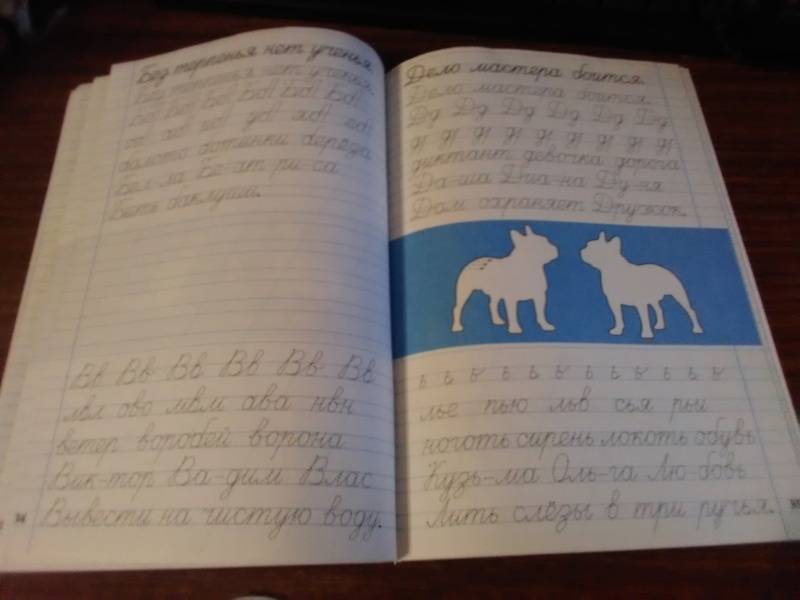 Без терпенья нет ученья.
Без терпенья нет ученья.
болото ботинки берёза
Бел-ла Бе-ат-ри-са
Бить баклуши.
Вв Вв Вв Вв Вв Вв
ово мвм ава нвн
ветер воробей ворона
Вик-тор Ва-дим Влас
Вывести на чистую воду.
34
Дело мастера боится.
Дело мастера боится.
Дд Дд Дд Дд Дд Дд
диктант девочка дорога
Да-ша Диа-на Ду-ня
Дом охраняет Дружок.
ь ь ь ь ь ь ь ь ь ь ь ь
лье пью льв сья рьи
ноготь сирень локоть обувь
Кузь-ма Оль-га Лю-бовь
Лить слёзы в три ручья.